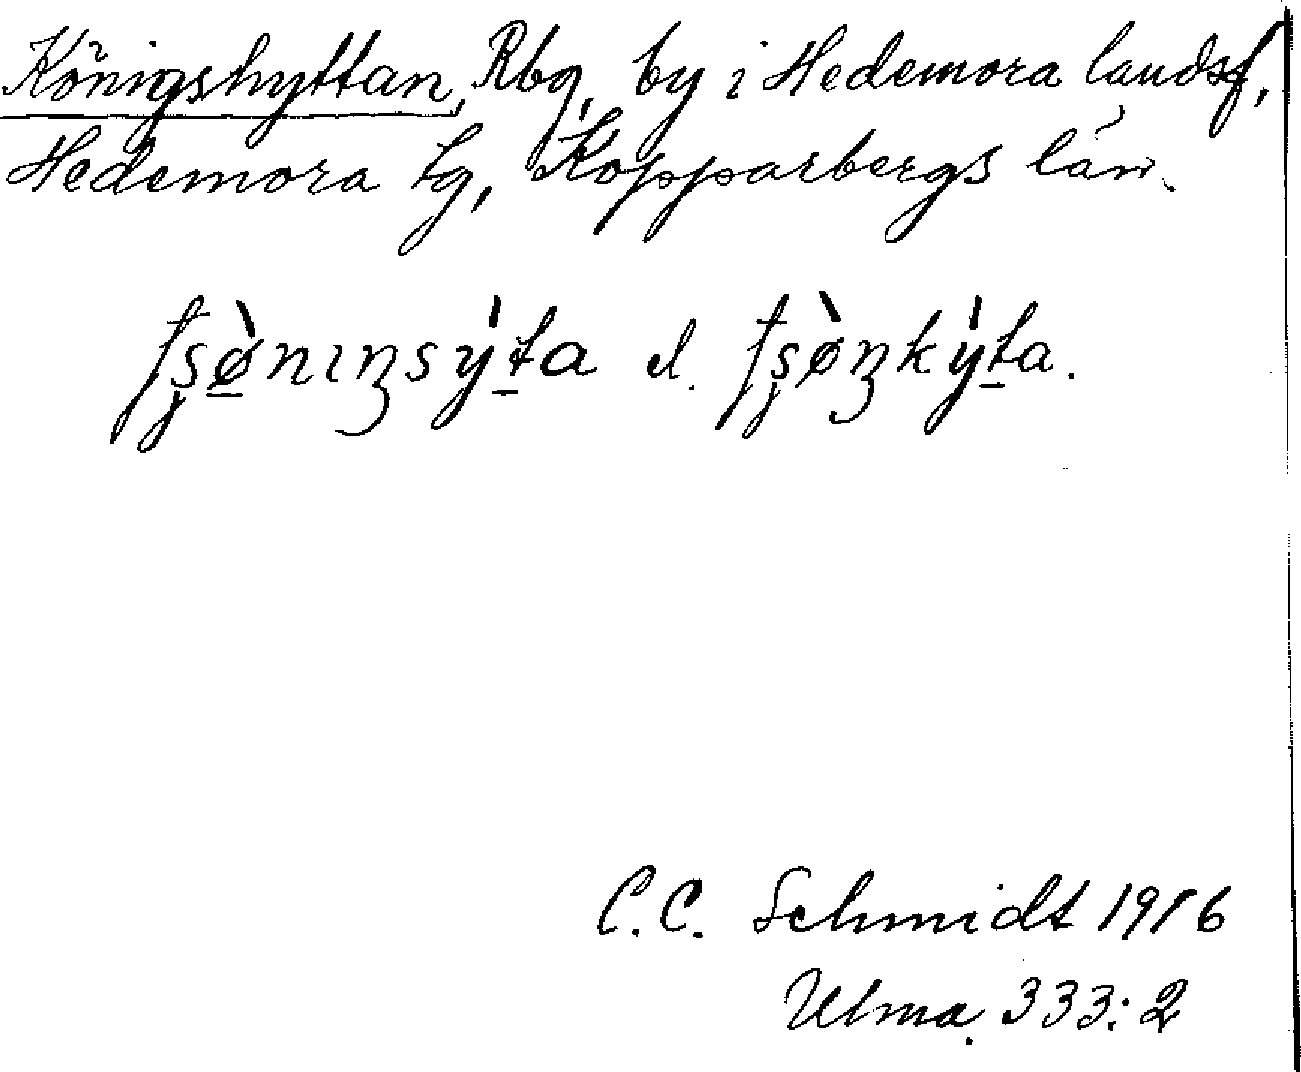 Königshyttan, Rbg, by i Hedemora landsf,
Hedemora tg, Kopparbergs län.
el.
C.C. Schmidt 1916
Ulma 333:2